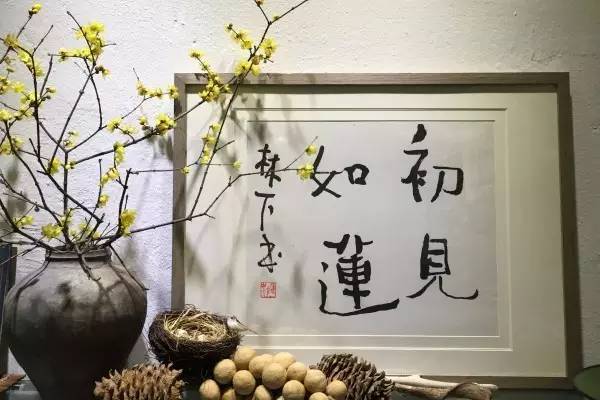 初見
如蓮
林下书